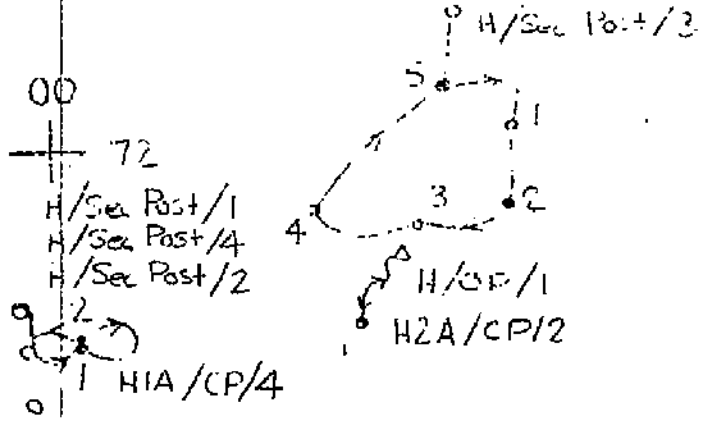 H/Sec Post/3
5
00
1
72
H/Sec Post/1
3
2
4
H/Sec Post/4
H/Sec Post/2
H/OP/1
2
H2A/CP/2
1
H1A/CP/4